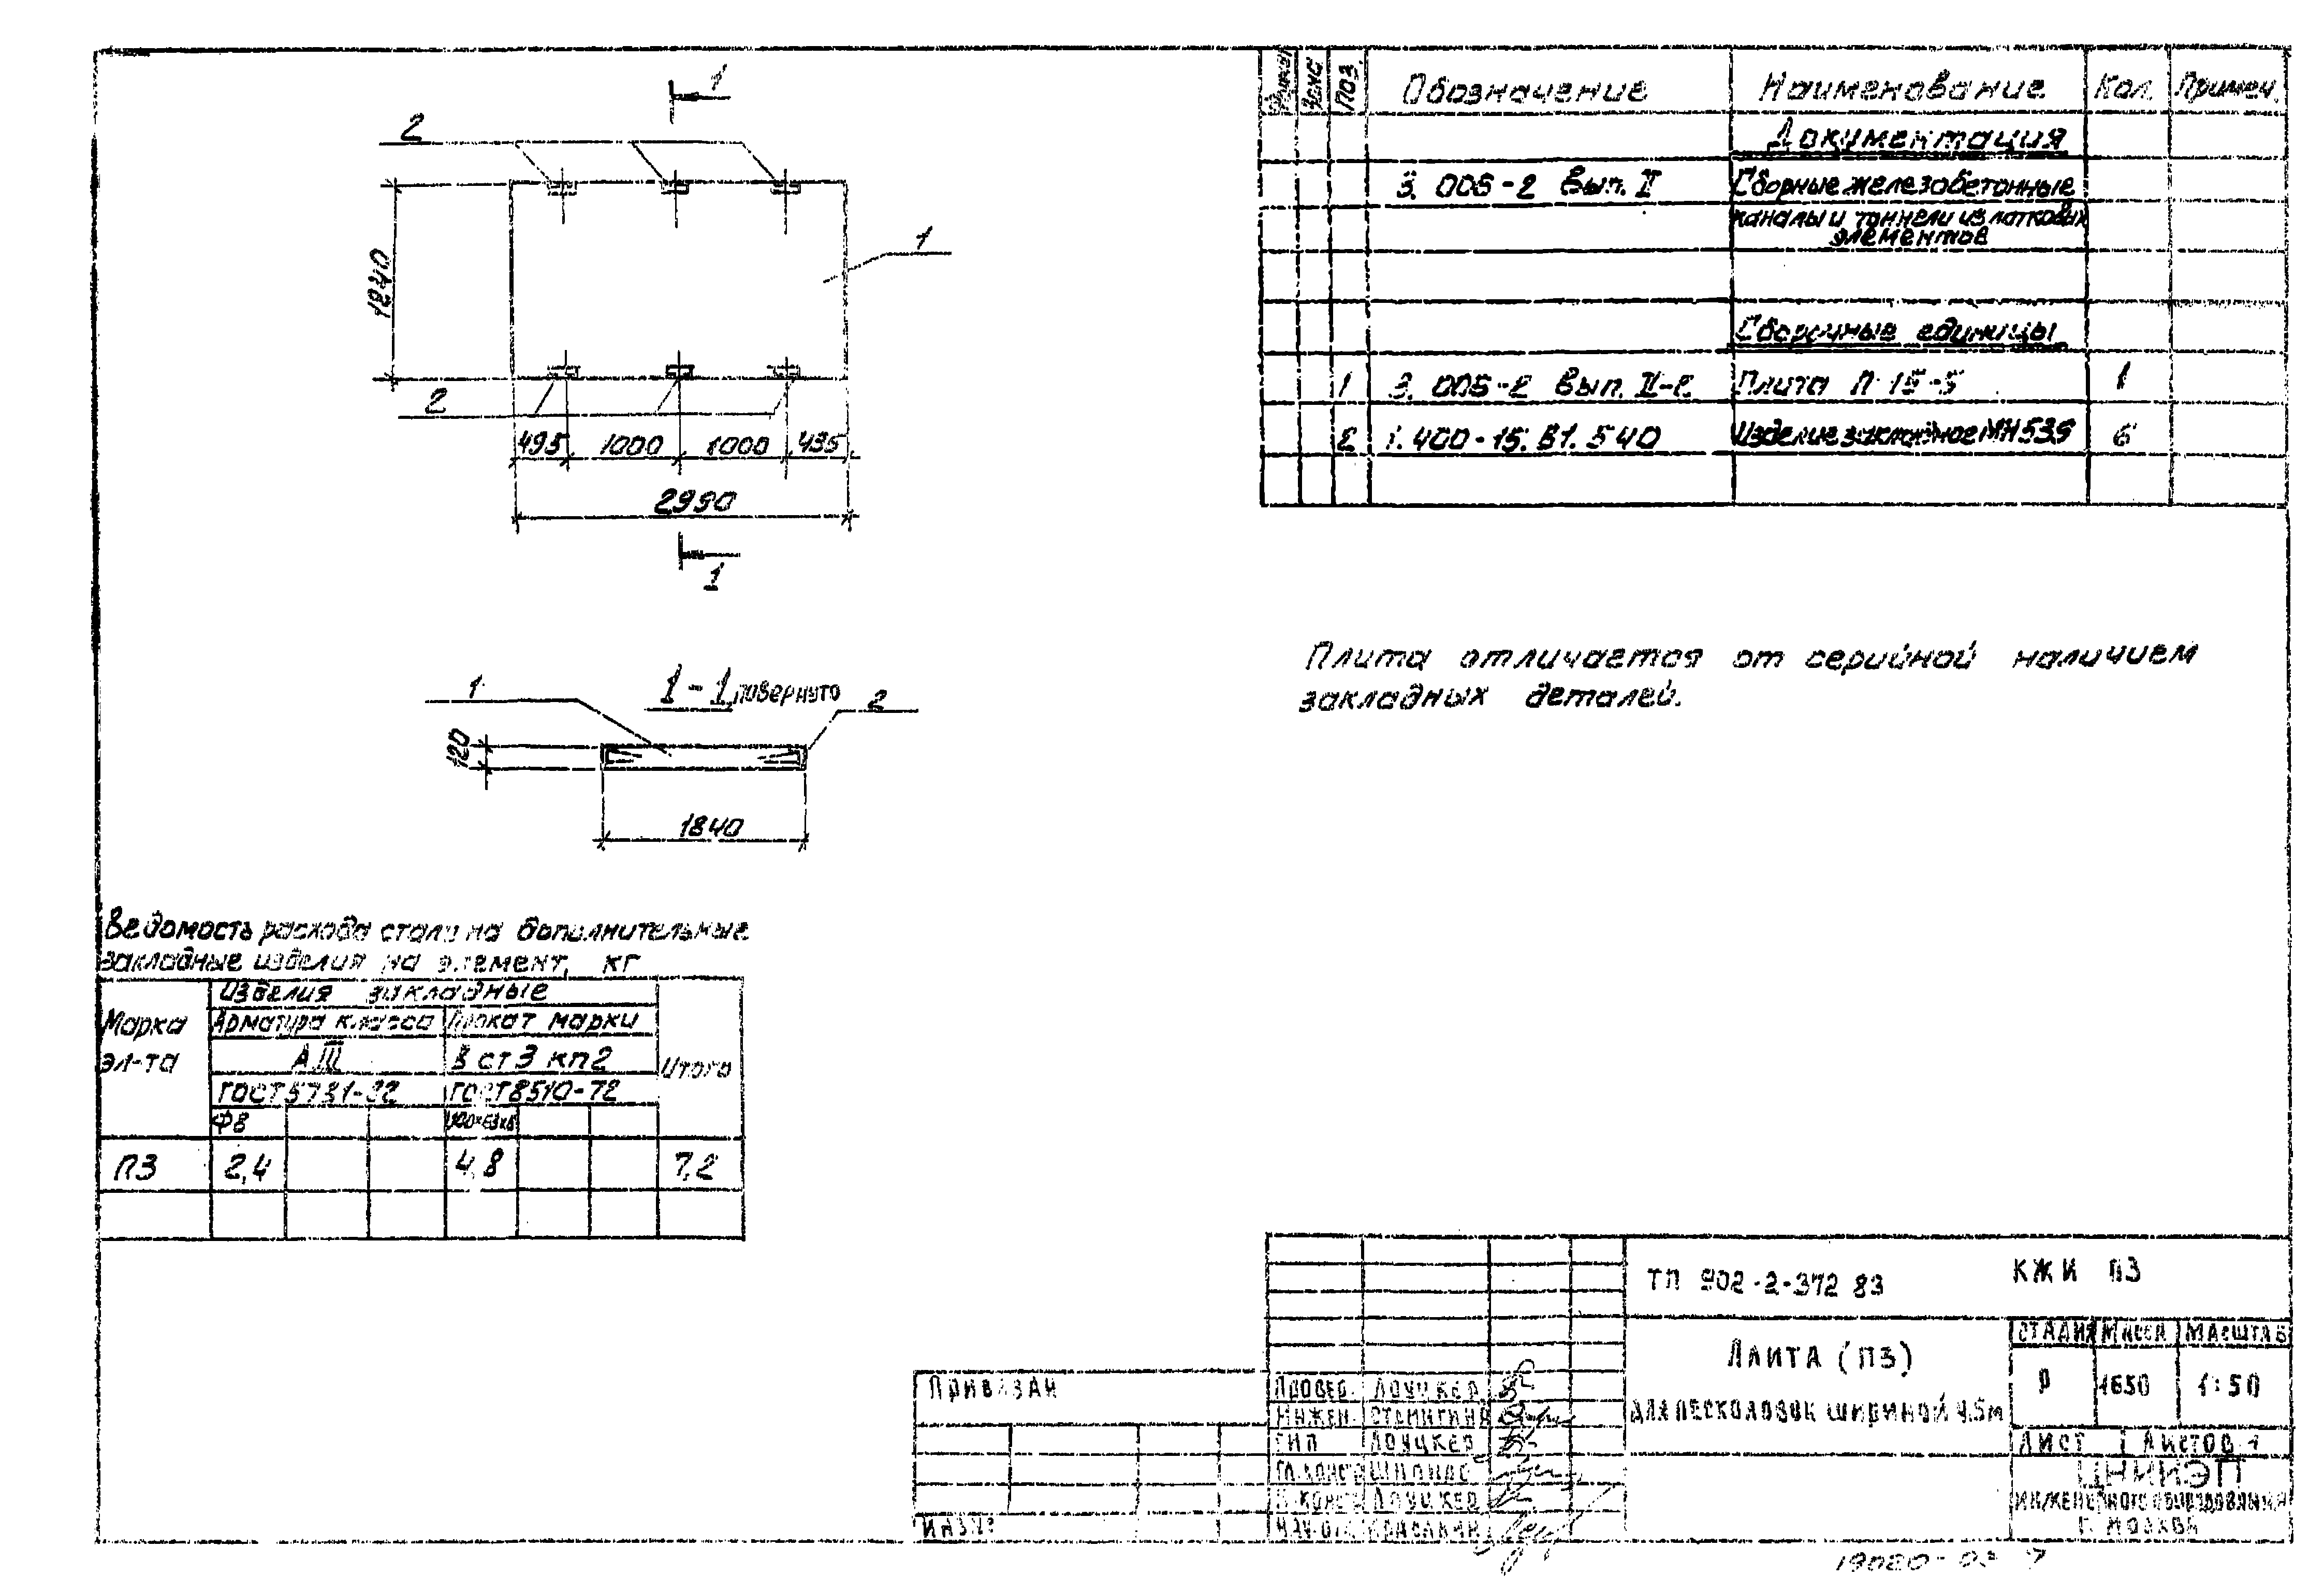 1
2
1
1840
2
495
1000
1000
495
2990
1
1
1-1 повернуто
2
120
1840
Поз.
Обозначение
Наименование
Кол.
Примеч.
Документация
3.006-2 Вып. II
Сборные железобетонные
каналы и тоннели из лотковых
элементов
Сборочные единицы
1
3.006-2 Вып. II-2
Плита П 15-5
1
2
1.400-15. В1. 540
Изделие закладное МН 539
6
Плита отличается от серийной наличием
закладных деталей.
Ведомость расхода стали на дополнительные
закладные изделия на элемент, кг
Марка
эл-та
Изделия закладные
Арматура класса
Прокат марки
Итого
А III
В ст 3 кп2
ГОСТ 5781-82
ГОСТ 8510-72
Ф8
П3
2,4
4,8
7,2
ТП 902-2-372 83
КЖИ П3
Плита (П3)
для песколовок шириной 4.5м
Стадия
Масса
Масштаб
Р
1650
1:50
Лист
Листов 1
ЦНИИЭП
инженерного оборудования
г. Москва
Привязан
Инв №
Провер.
Лоуцкер
Инжен.
ГИП
Лоуцкер
Гл. констр
Н. контр
Лоуцкер
Нач. отд.